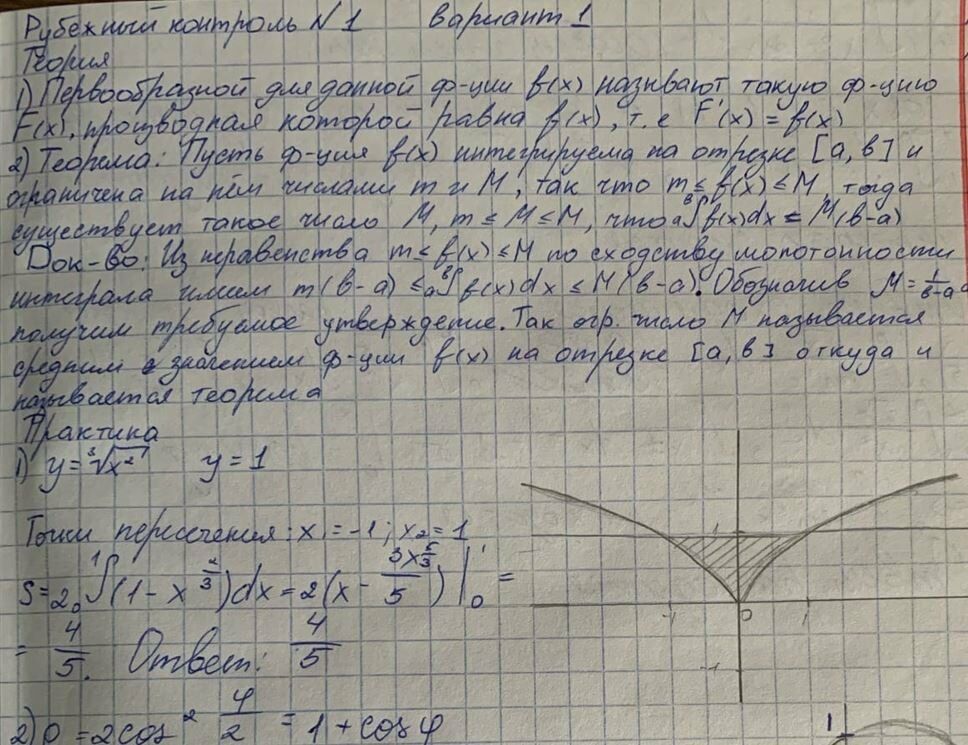 Рубежный контроль №1 Вариант 1
Теория
1) Первообразной для данной ф-ции f(x) называют такую ф-цию
F(x), производная которой равна f(x), т.е F'(x) = f(x)
2) Теорема: Пусть ф-ция f(x) интегрируема на отрезке [a, b] и
ограничена на нём числами m и M, так что m ≤ f(x) ≤ M, тогда
существует такое число M, m ≤ M ≤ M, что a∫ᵇf(x)dx = M(b-a)
Док-во: Из неравенства m ≤ f(x) ≤ M по сходству монотонности
интеграла имеем m(b-a) ≤ a∫ᵇf(x)dx ≤ M(b-a). Обозначив M = 1/(b-a)
получим требуемое утверждение. Так огр. число M называется
средним значением ф-ции f(x) на отрезке [a, b] откуда и
называется теорема
Практика
1) y = ∛x² y = 1
Точки пересечения: x₁ = -1; x₂ = 1
S = 2₀∫¹(1 - x^(2/3))dx = 2(x - 3x^(5/3)/5)|₀¹ =
= 4/5. Ответ: 4/5
1
-1 0 1
-1
2) ρ = 2cos² φ/2 = 1 + cos φ
1